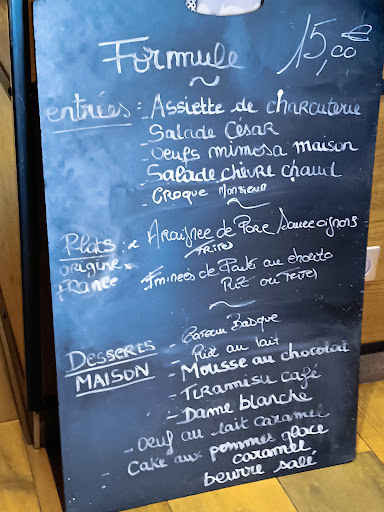 Formule 15,00€
entrées : Assiette de charcuterie
- Salade César
- Oeufs mimosa maison
- Salade chèvre chaud
- Croque Monsieur
Plats : Araignée de Porc Sauce oignons
origine frites
France Eminces de Poulet au chorizo
Riz ou frites
Desserts MAISON
- Gateau Basque
- Riz au lait
- Mousse au chocolat
- Tiramisu café
- Dame blanche
- Oeuf au lait caramel
- Cake aux pommes glace
caramel
beurre salé